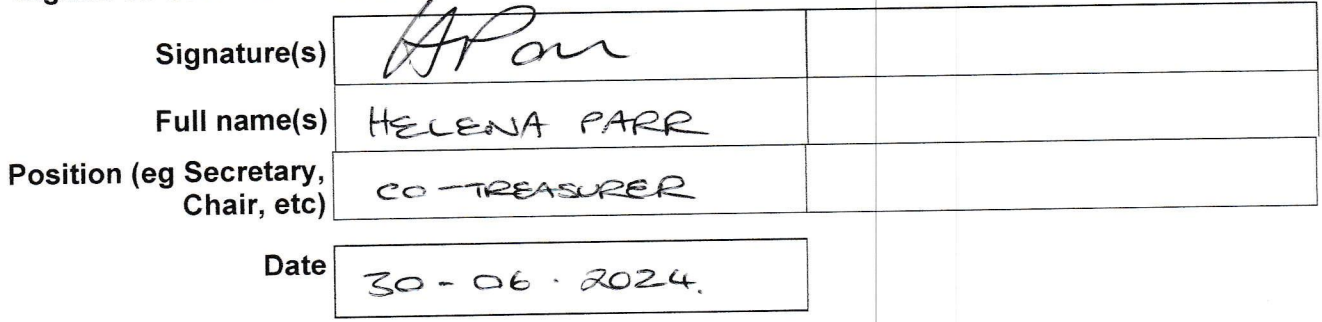 Signature(s) HParr
Full name(s) HELENA PARR
Position (eg Secretary,
Chair, etc) CO-TREASURER
Date 30-06.2024.